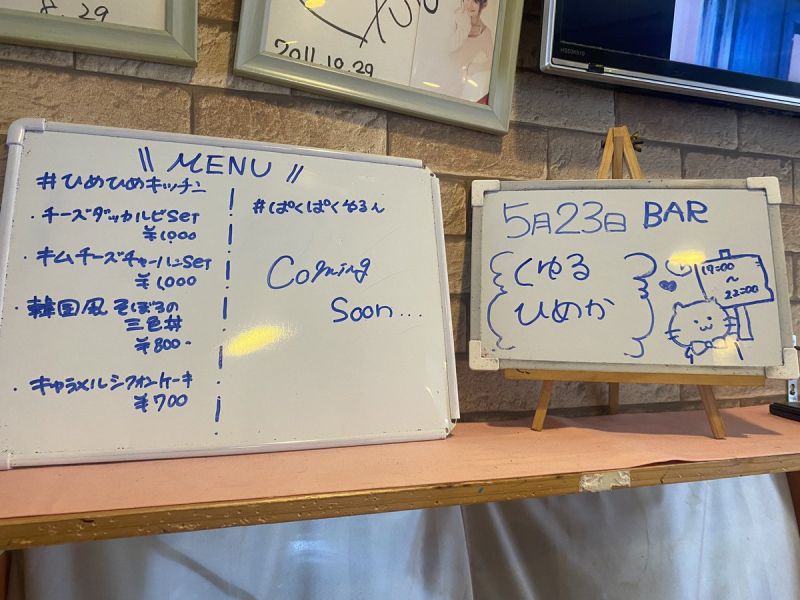 8.29
2011.10.29
\\ MENU //
#ひめひめキッチン
・チーズダッカルビSet
¥1,000
・キムチーズチャーハンSet
¥1,000
・韓国風そぼろの
三色丼
¥800-
・キャラメルシフォンケーキ
¥700
#ぱくぱくゆるん
Coming
Soon...
5月23日 BAR
くゆる
ひめか
19:00
~
22:00